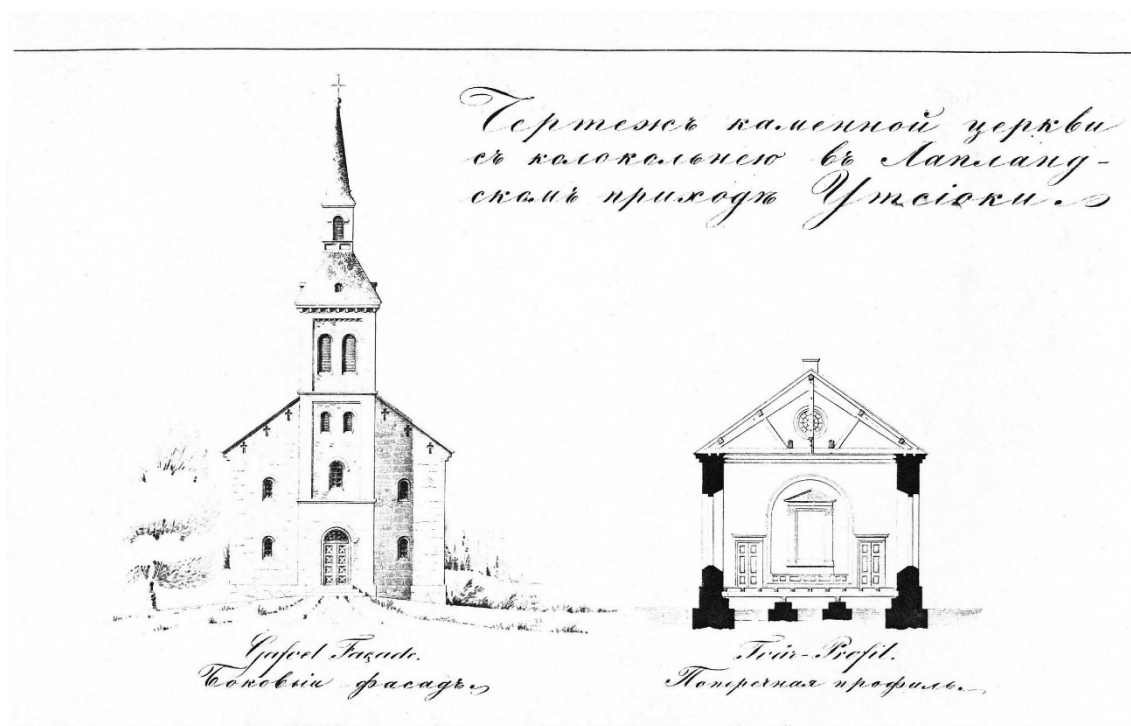 Чертежъ каменной церкви
съ колокольнею въ Лапланд-
скомъ приходѣ Утсіоки.
Gafvel Façade.
Боковыи фасадъ.
Tvär-Profil.
Поперечная профиль.